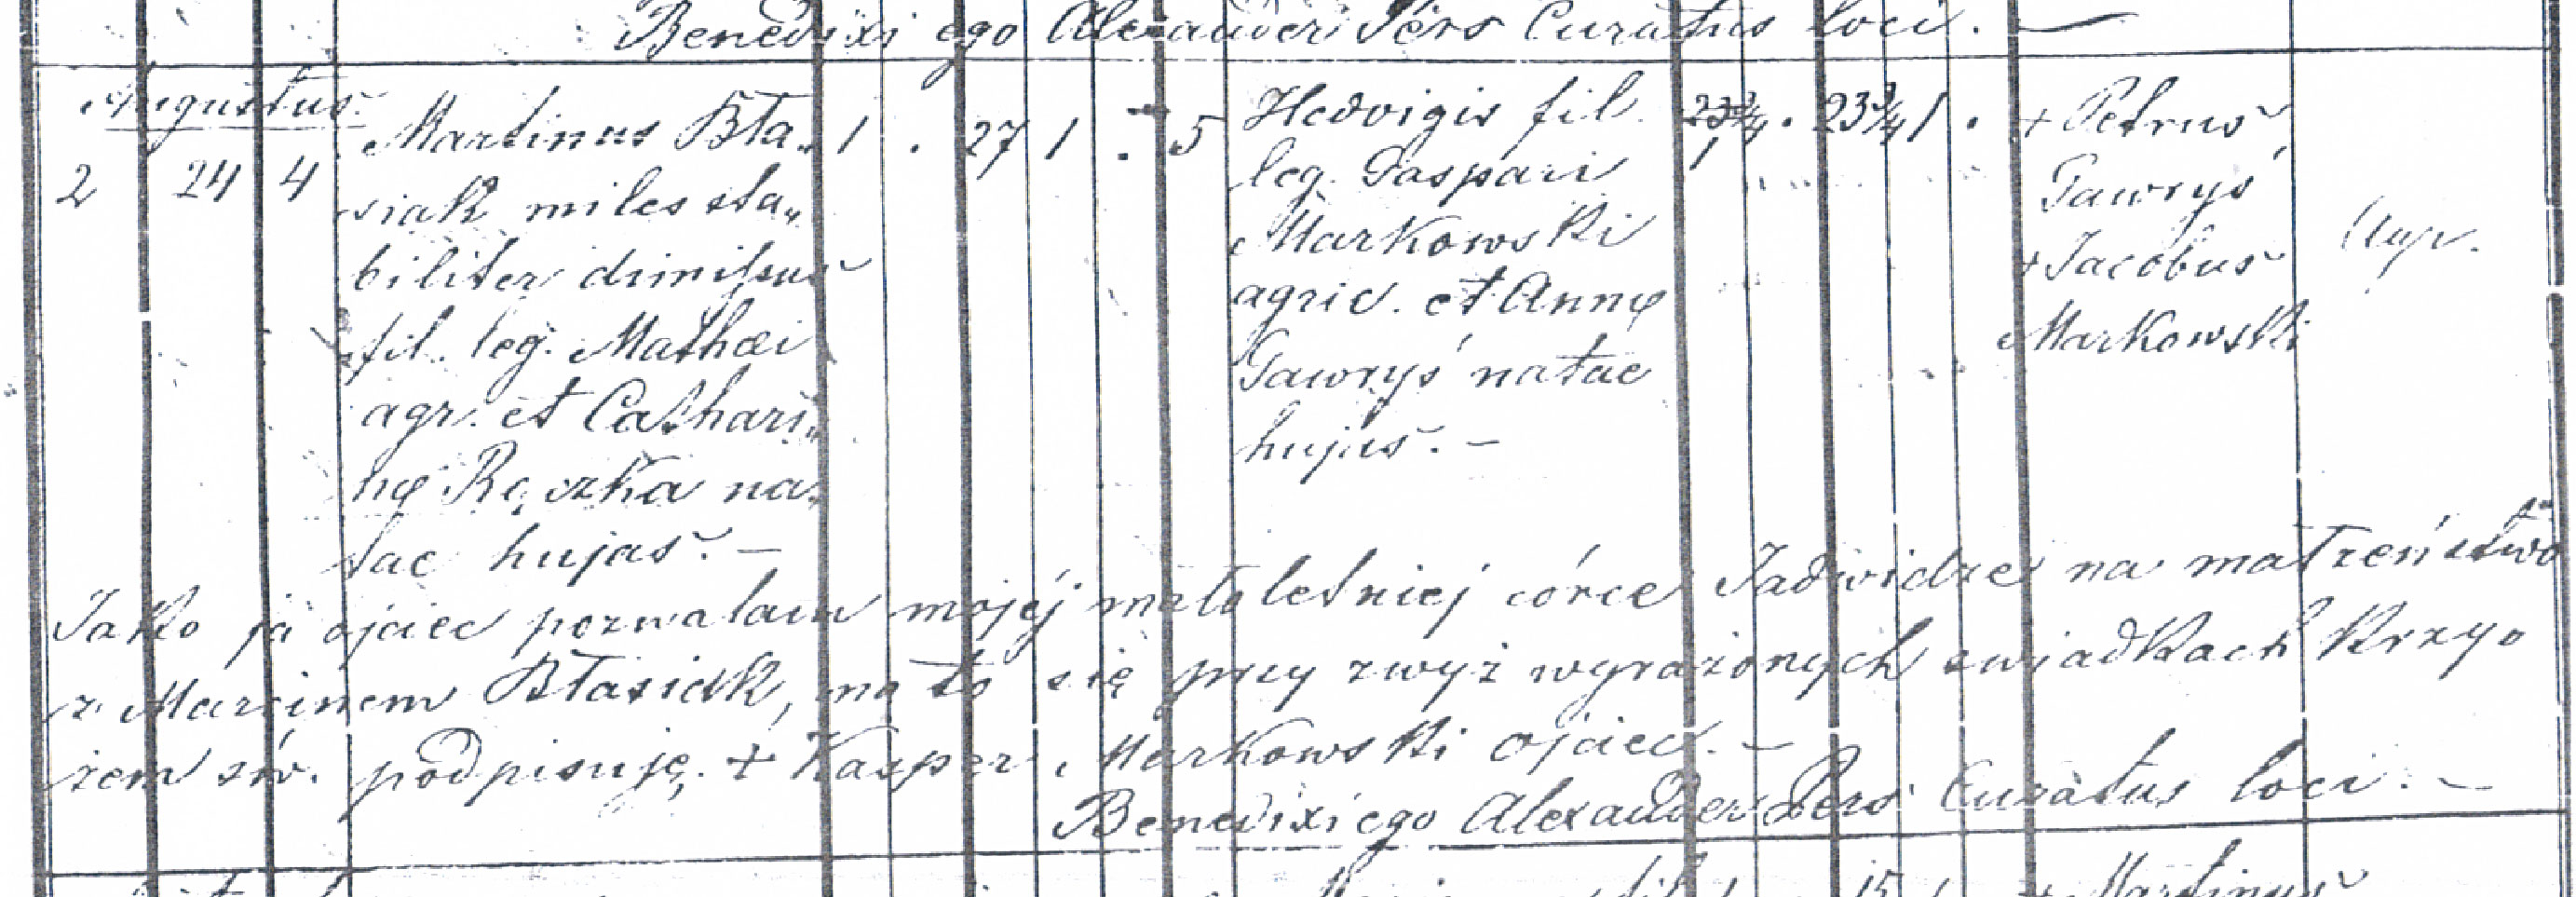 Benedixi ego Alexander Pers Curatus loci. —
Augustus.
2 24 4
Martinus Bła„
siak miles sta„
biliter dimissus
fil. leg. Mathæi
agr. et Cathari„
nę Rączka na„
tae hujas. —
1 . 27 1 . 5
Hedvigis fil.
leg. Gaspari
Markowski
agric. et Annę
Gawryś natae
hujus. —
23¾ . 23¾ 1 .
1
+ Petrus
Gawryś
+ Jacobus
Markowski
Agr.
Jako ja ojciec pozwalam mojéj małoletniej córce Jadwidze na małżeństwo
z Marcinem Błasiak, na to się przy zwyż wyrażonych świadkach krzy„
żem św. podpisuję. + Kasper Markowski ojciec. —
Benedixi ego Alexander Pers Curatus loci. —
Martinus